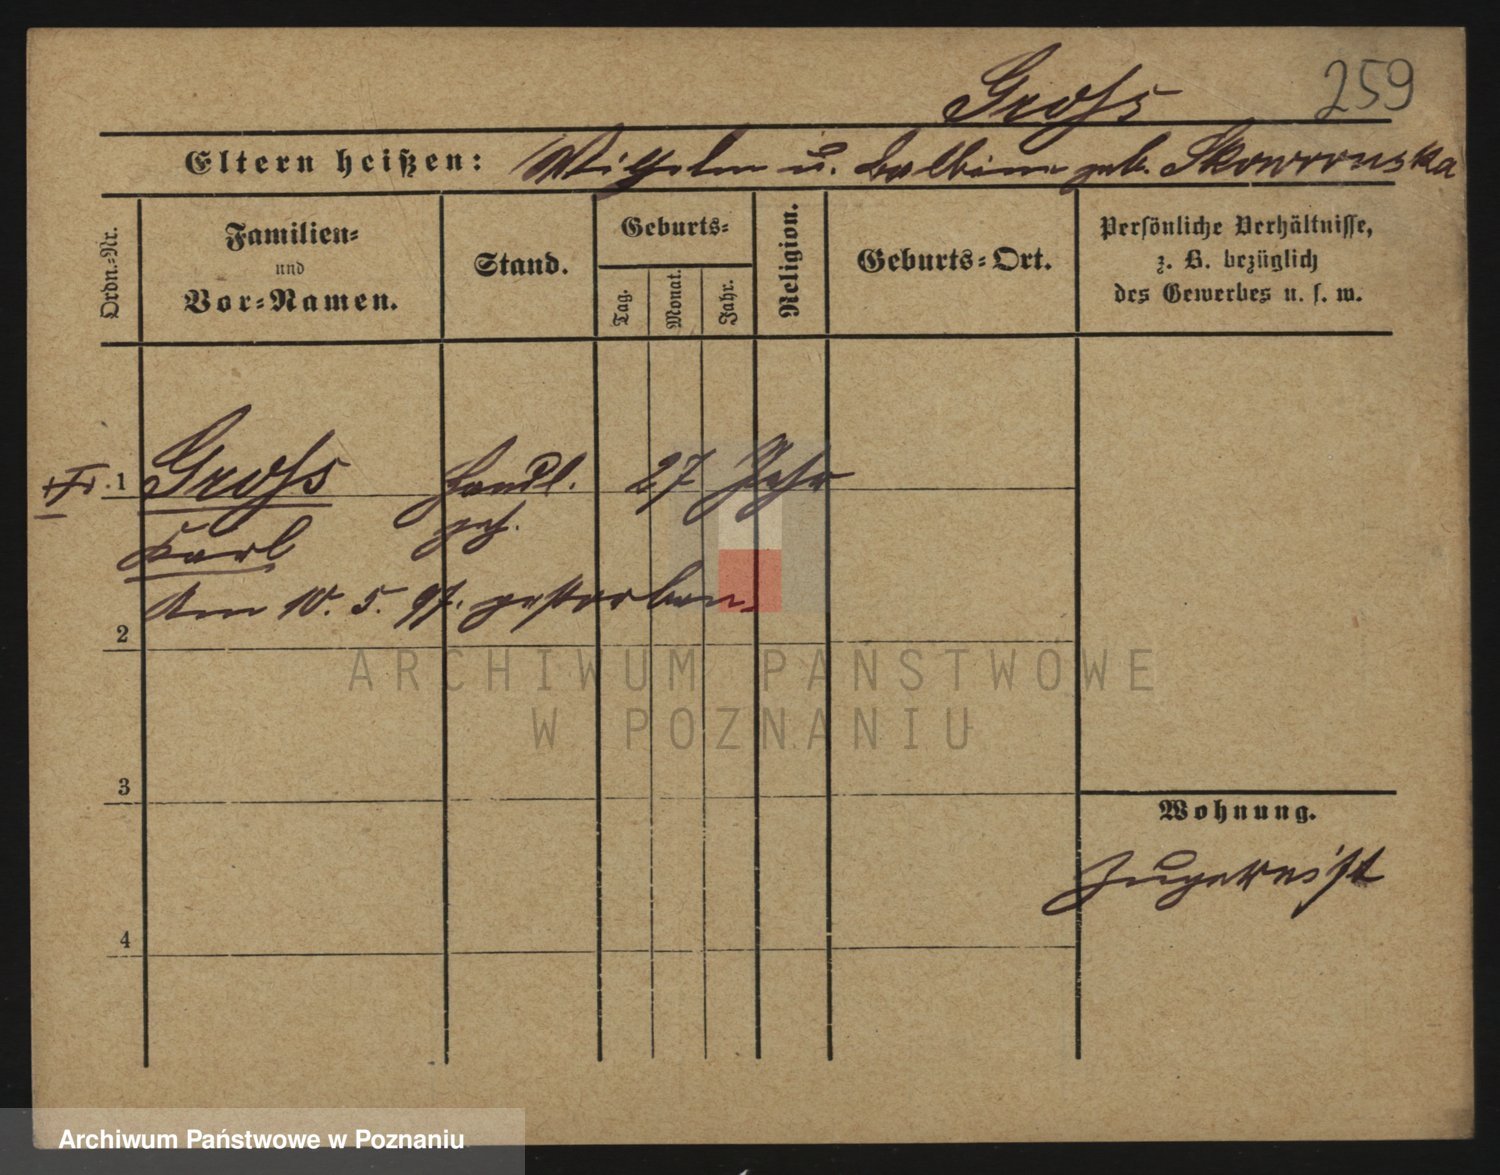 Gross 259
Eltern heißen: Wilhelm u. Balbine geb. Skowronska
Ordn.-Nr.
Familien-
und
Vor-Namen.
Stand.
Geburts-
Tag.
Monat.
Jahr.
Religion.
Geburts-Ort.
Persönliche Verhältnisse,
z. B. bezüglich
des Gewerbes u. s. w.
1 Gross Handl. 27 Jahr
Karl geh.
Am 10. 5. 97. gestorben.
2
ARCHIWUM PAŃSTWOWE
W POZNANIU
3
Wohnung.
Zugereist
4
Archiwum Państwowe w Poznaniu